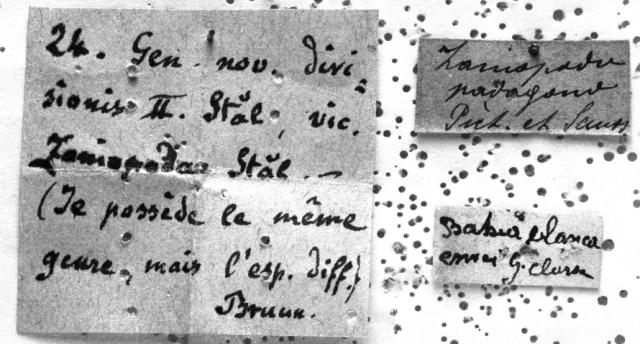 24. Gen. nov. divi-
sionis II. Stål, vic.
Zaniopodae Stål —
(Je possède le même
genre, mais l'esp. diff.)
Brunn.
Zaniopoda
Pict. et Sauss
Bahia blanca